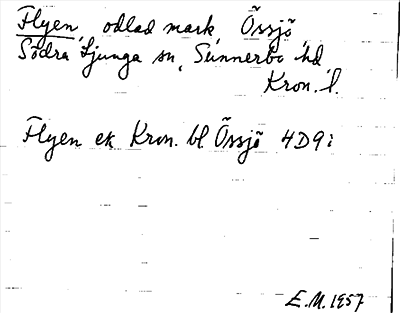 Flyen, odlad mark, Össjö,
Södra Ljunga sn, Sunnerbo hd,
Kron. l.
Flyen ek Kron. bl Össjö 4D9i
E.M. 1957